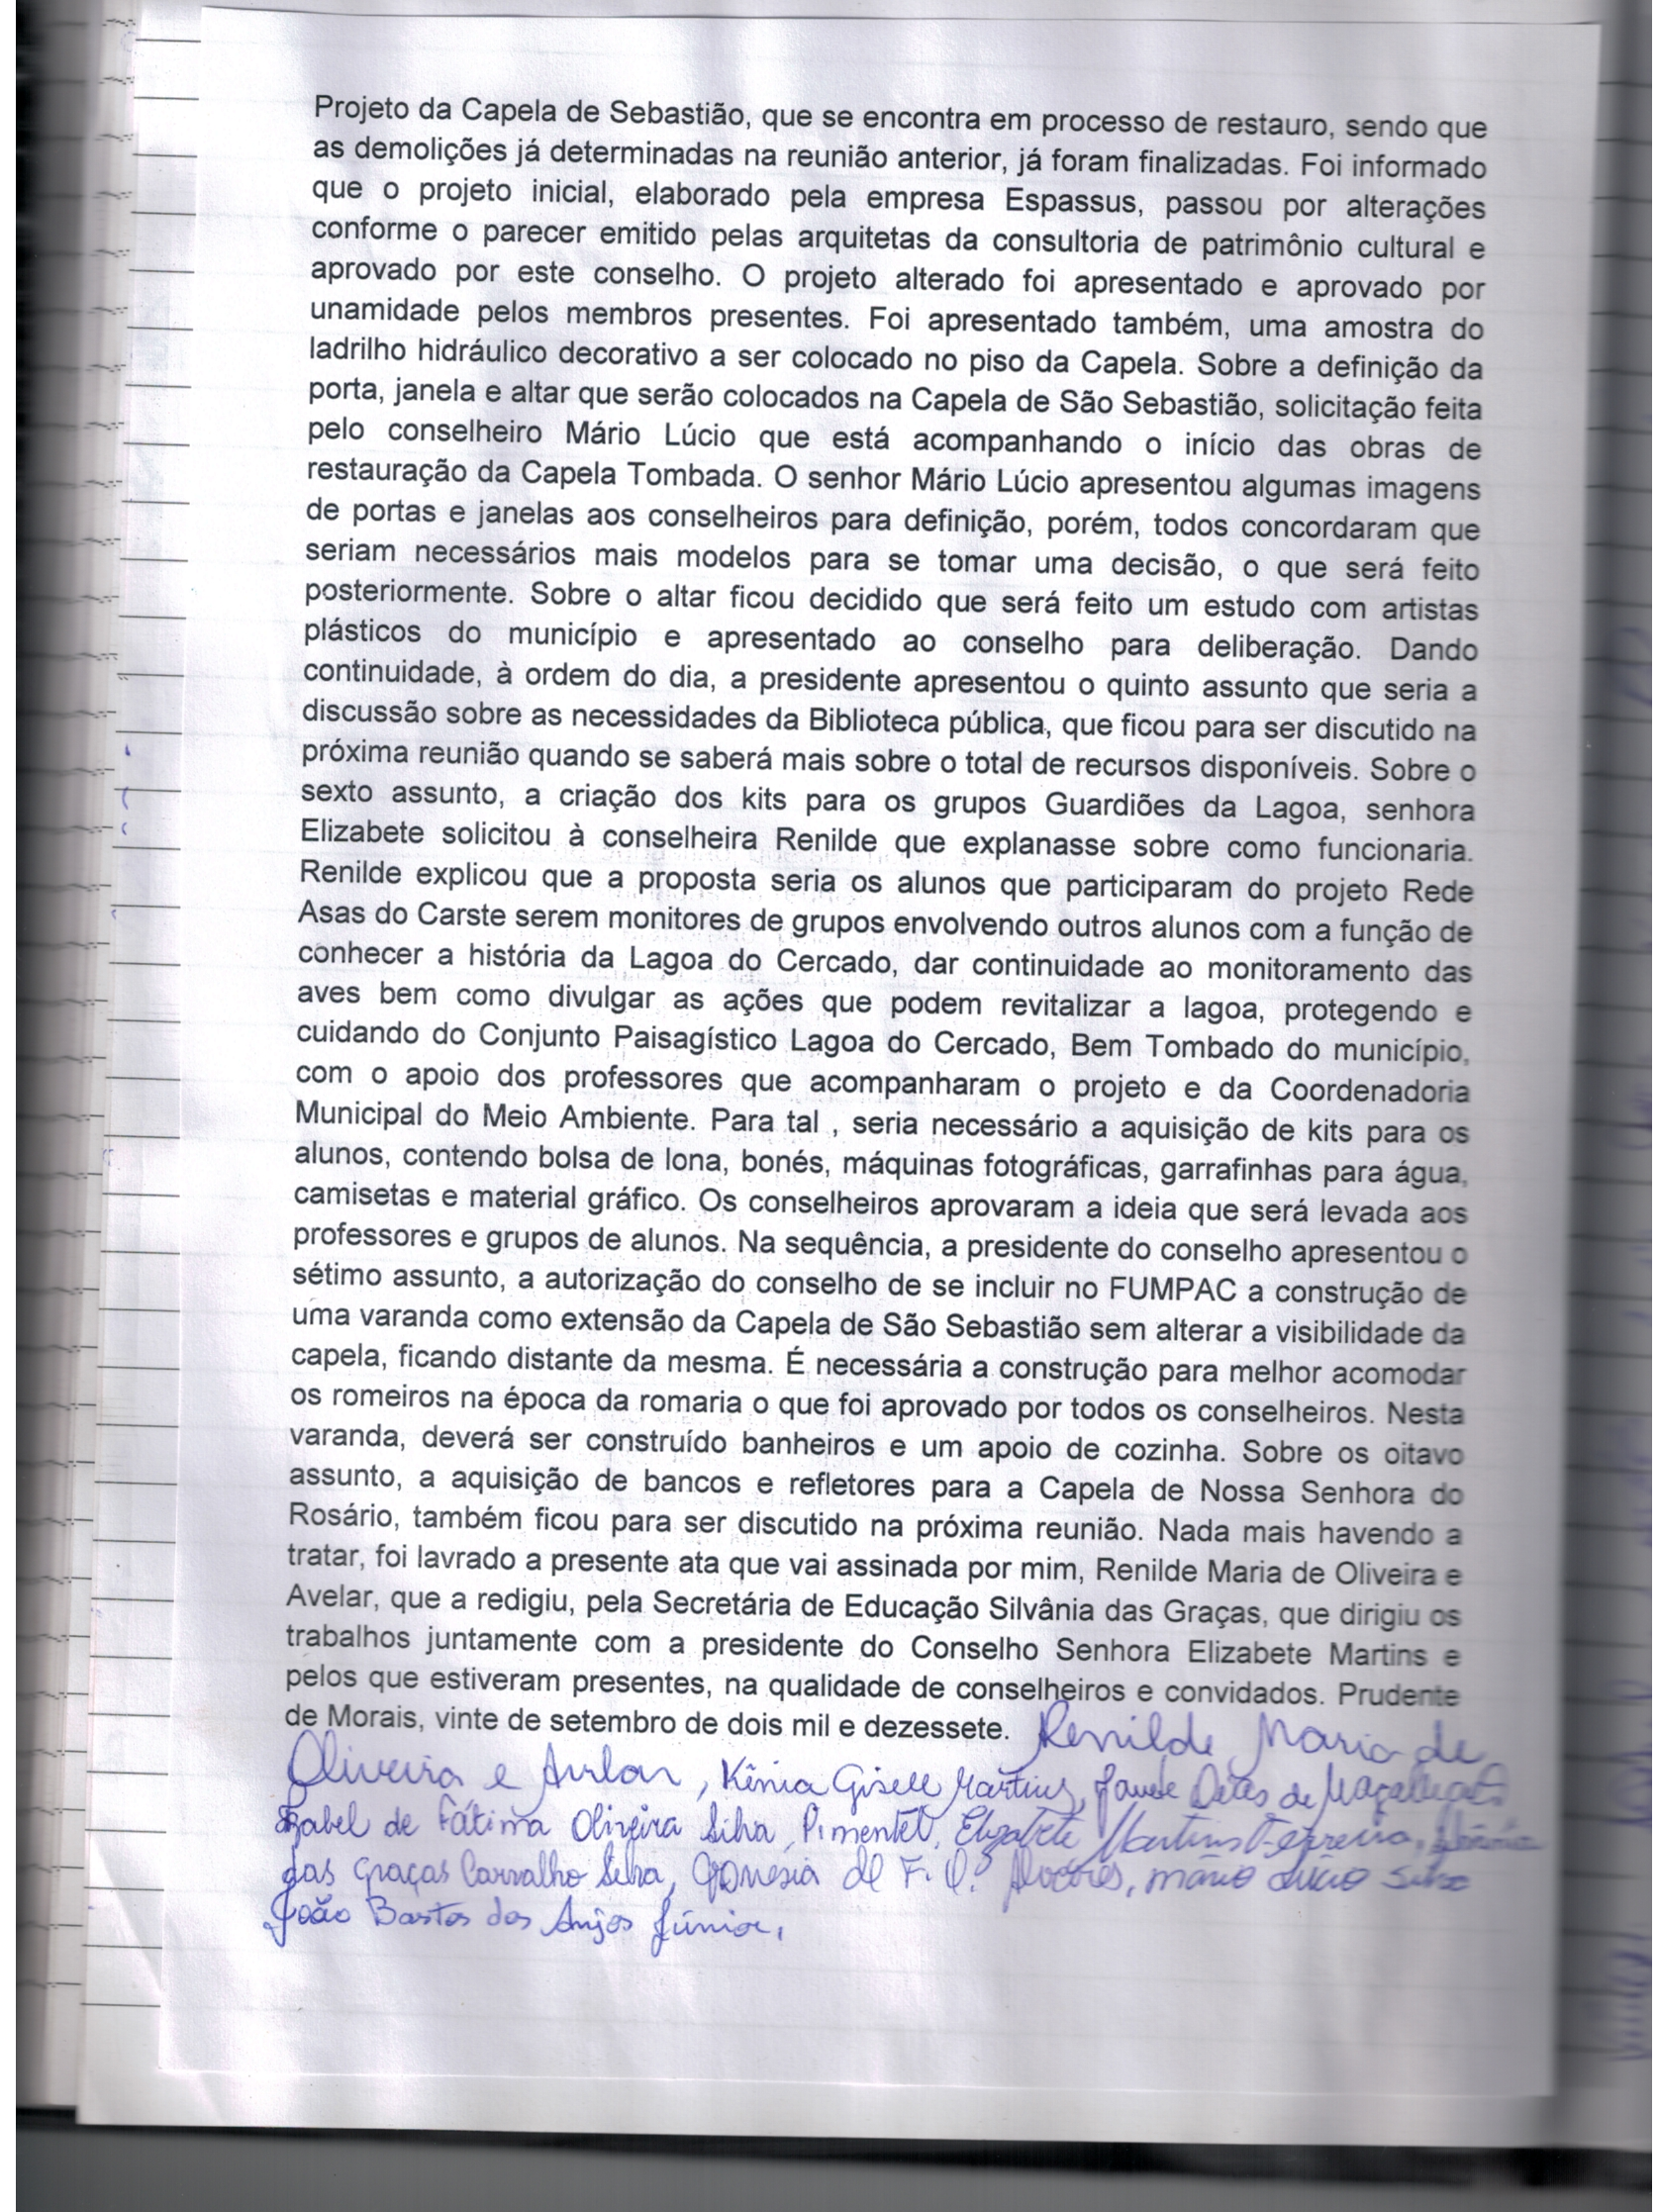 Projeto da Capela de Sebastião, que se encontra em processo de restauro, sendo que
as demolições já determinadas na reunião anterior, já foram finalizadas. Foi informado
que o projeto inicial, elaborado pela empresa Espassus, passou por alterações
conforme o parecer emitido pelas arquitetas da consultoria de patrimônio cultural e
aprovado por este conselho. O projeto alterado foi apresentado e aprovado por
unamidade pelos membros presentes. Foi apresentado também, uma amostra do
ladrilho hidráulico decorativo a ser colocado no piso da Capela. Sobre a definição da
porta, janela e altar que serão colocados na Capela de São Sebastião, solicitação feita
pelo conselheiro Mário Lúcio que está acompanhando o início das obras de
restauração da Capela Tombada. O senhor Mário Lúcio apresentou algumas imagens
de portas e janelas aos conselheiros para definição, porém, todos concordaram que
seriam necessários mais modelos para se tomar uma decisão, o que será feito
posteriormente. Sobre o altar ficou decidido que será feito um estudo com artistas
plásticos do município e apresentado ao conselho para deliberação. Dando
continuidade, à ordem do dia, a presidente apresentou o quinto assunto que seria a
discussão sobre as necessidades da Biblioteca pública, que ficou para ser discutido na
próxima reunião quando se saberá mais sobre o total de recursos disponíveis. Sobre o
sexto assunto, a criação dos kits para os grupos Guardiões da Lagoa, senhora
Elizabete solicitou à conselheira Renilde que explanasse sobre como funcionaria.
Renilde explicou que a proposta seria os alunos que participaram do projeto Rede
Asas do Carste serem monitores de grupos envolvendo outros alunos com a função de
conhecer a história da Lagoa do Cercado, dar continuidade ao monitoramento das
aves bem como divulgar as ações que podem revitalizar a lagoa, protegendo e
cuidando do Conjunto Paisagístico Lagoa do Cercado, Bem Tombado do município,
com o apoio dos professores que acompanharam o projeto e da Coordenadoria
Municipal do Meio Ambiente. Para tal , seria necessário a aquisição de kits para os
alunos, contendo bolsa de lona, bonés, máquinas fotográficas, garrafinhas para água,
camisetas e material gráfico. Os conselheiros aprovaram a ideia que será levada aos
professores e grupos de alunos. Na sequência, a presidente do conselho apresentou o
sétimo assunto, a autorização do conselho de se incluir no FUMPAC a construção de
uma varanda como extensão da Capela de São Sebastião sem alterar a visibilidade da
capela, ficando distante da mesma. É necessária a construção para melhor acomodar
os romeiros na época da romaria o que foi aprovado por todos os conselheiros. Nesta
varanda, deverá ser construído banheiros e um apoio de cozinha. Sobre os oitavo
assunto, a aquisição de bancos e refletores para a Capela de Nossa Senhora do
Rosário, também ficou para ser discutido na próxima reunião. Nada mais havendo a
tratar, foi lavrado a presente ata que vai assinada por mim, Renilde Maria de Oliveira e
Avelar, que a redigiu, pela Secretária de Educação Silvânia das Graças, que dirigiu os
trabalhos juntamente com a presidente do Conselho Senhora Elizabete Martins e
pelos que estiveram presentes, na qualidade de conselheiros e convidados. Prudente
de Morais, vinte de setembro de dois mil e dezessete. Renilde Maria de
Oliveira e Avelar, Kênia Gisele Martins, de Magalhães
Izabel de Fátima Oliveira Silva Pimentel, Elizabete Martins Ferreira,
das Graças Carvalho Silva, de F. Mário Lúcio Silva
João Bastos dos Anjos Júnior,